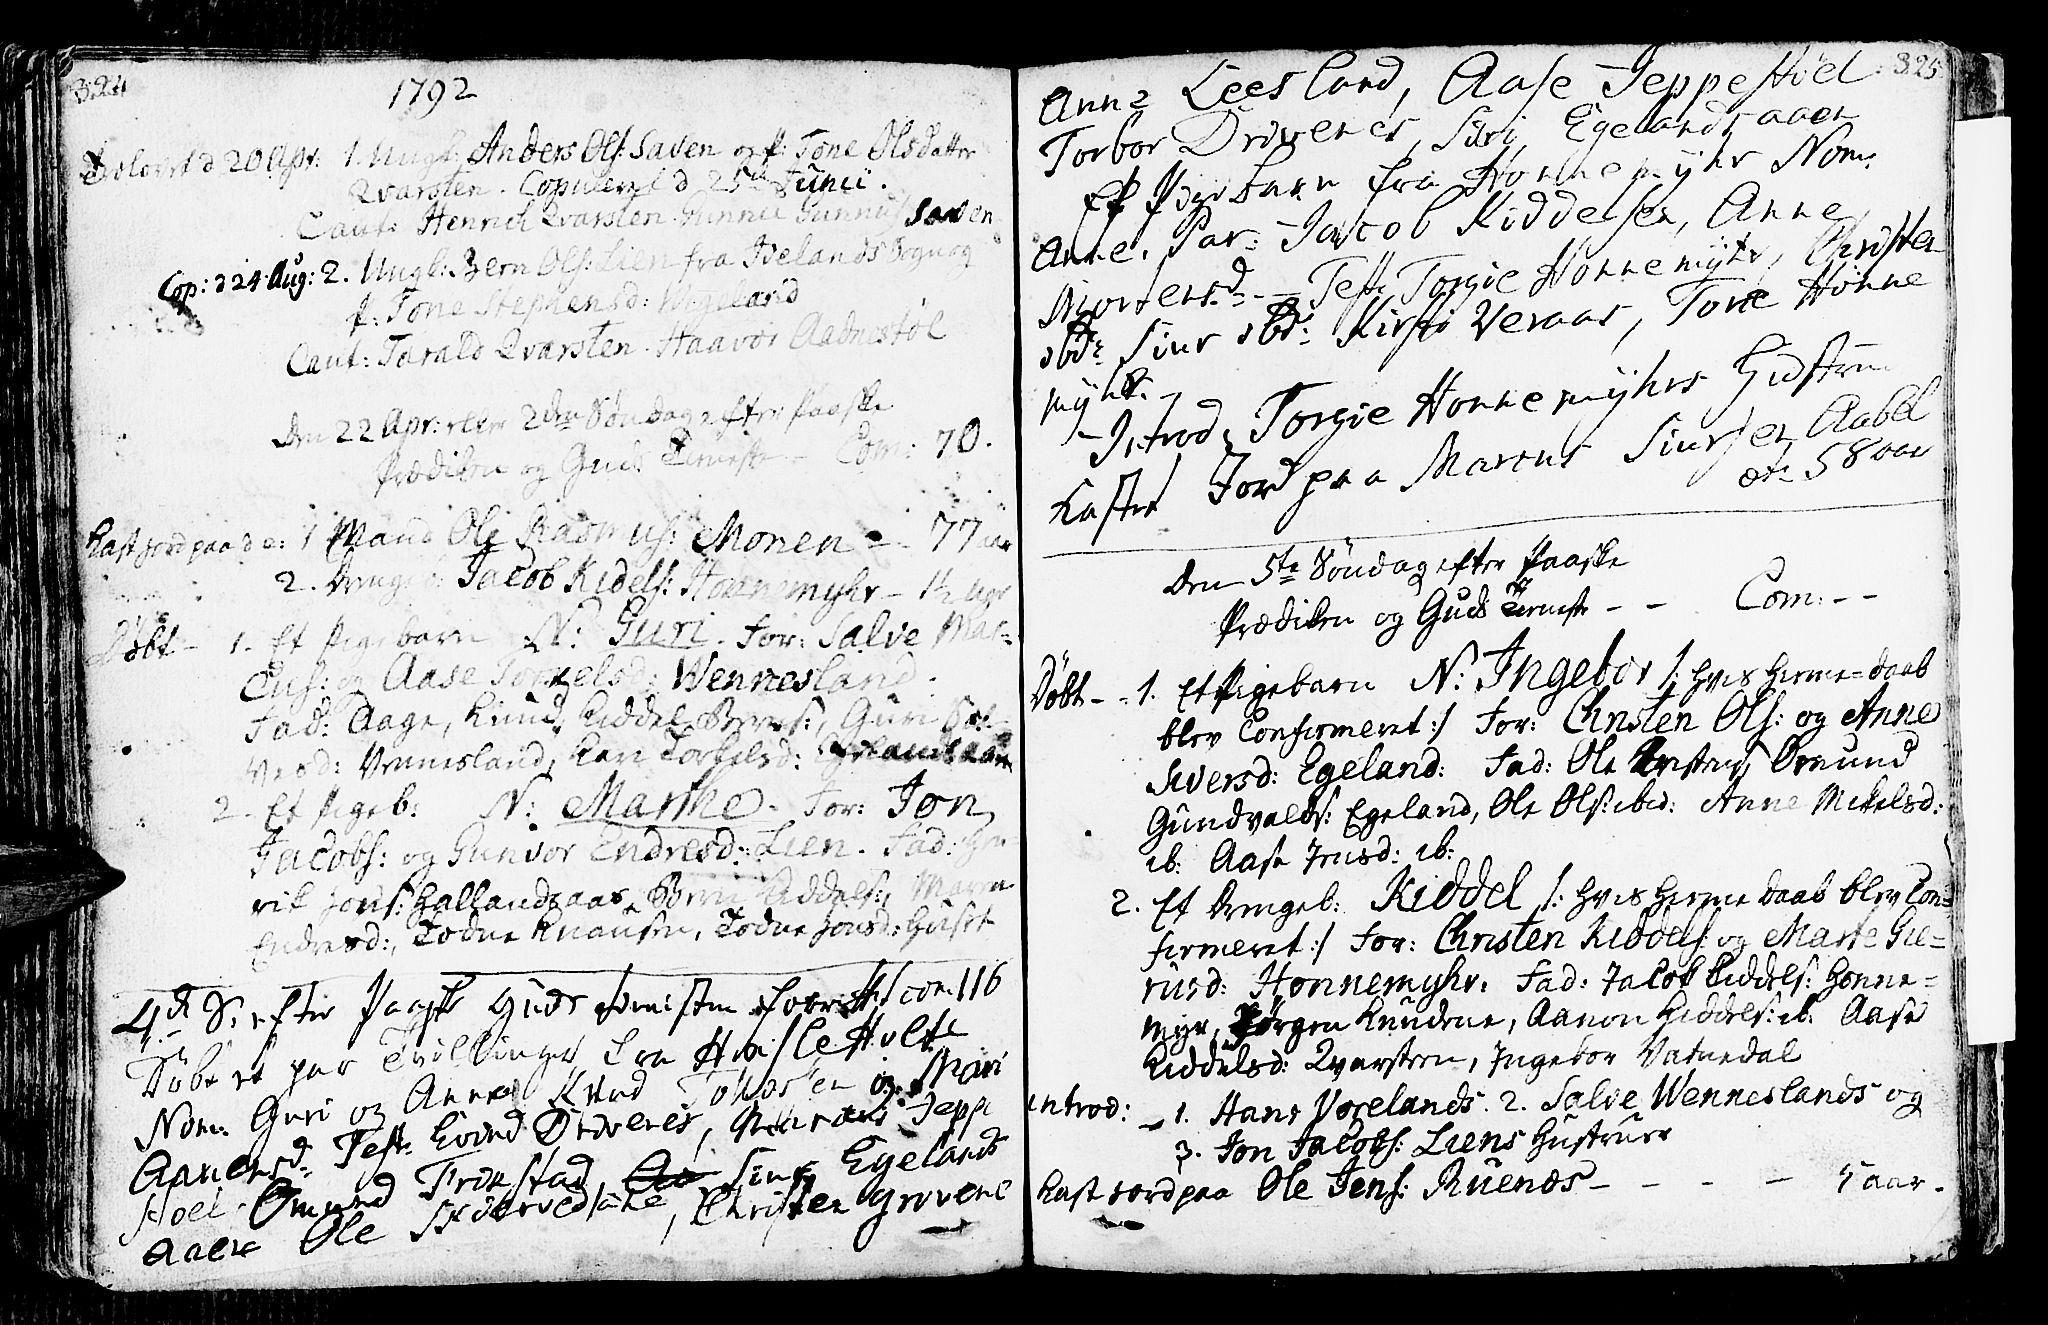 324
1792
Trolovet d 20 Apr: 1. Ungk: Anders Ols: Saven og P: Tone Olsdatter
Qvarsten. Copuleret d 25de Junii.
Caut: Henrich Qvarsten. Gunnu Gunnufs: Saven
Cop: d 24 Aug: 2. Ungk: Bern Ols: Lien fra Ivelands Sogn og
P: Tone Stephensd: Vigeland
Caut: Tarald Qvarsten. Haavor Aadnestøl
Den 22 Apr: eller 2den Søndag efter Paaske
Prædiken og Guds Tieneste – Com: 70.
Kast jord paa d e: 1 Mand Ole Rasmus: Monen – 77 aar
2. Drenge Jacob Kidels: Honnemyhr – 1½ aar
Døbt – 1. Et Pigebarn N: Guri. For: Salve Mar=
cus: og Aase Torkelsd: Wennesland.
Fad: Aage, Knud, Kiddel Berns:, Guri Sal=
vesd: Vennesland, Kari Torkelsd: Egelandsaaen
2. Et Pigeb: N: Marthe. For: Jon
Jacobs: og Gunvor Endresd: Lien. Fad: Hen=
rik Jons: Hallandsaas, Bern Kiddels:, Maren
Endresd:, Todne Knausen, Todne Jonsd: Huset
4de S. efter Paaske Guds tienisten forrett com 116
Døbt et par Tvillinger fra Hæsle Holte
Nom. Guri og Anne Knud Tohosen og Mari
Aanensd: Test: Eivind Drivenes, Jeppe
støel. Omund Trokstad, Siur Egelands
aaen Ole, Christen Grovene
325
Anne Leesland, Aase Jeppestøel
Torbor Drivenes, Siri Egelandsaaen
Et Pige barn fra Honnemyhr Nom:
Anne. Par: Jacob Kiddelsen, Anne
Mortensd – Test: Torgie Honnemyhr, Christen
ibd: Siur ibd: Kirsti Veraas, Tone Honne
myhr. –
– Introd: Torgie Honnemyhrs Hustrue
Kasted Jord paa Marcus Siursen Aabel
æt: 58 aar
Den 5te Søndag efter Paaske
Prædiken og Guds Tieneste – – Com: – –
Døbt – – 1. Et Pigebarn N: Ingebor /: hvis hieme=daab
blev Confirmeret :/ For: Christen Ols: og Anne
Siversd: Egeland: Fad: Ole Omund
Gundvalds: Egeland, Ole Ols: ibid: Anne Mikelsd:
ib: Aase Jensd: ib:
2. Et Drengeb: Kiddel /: hvis hieme daab blev Con=
firmeret :/ For: Christen Kiddels: og Marte Gie=
rusd: Honnemyhr. Fad: Jacob Kiddels: Honne=
myr, Jørgen Knudene, Aanon Kiddels: ib: Aase
Kiddelsd: Qvarsten, Ingebor Vatnedal
introd: – 1. Hans Vorelands. 2. Salve Wenneslands og
3. Jon Jacobs: Liens Hustruer
Kast jord paa Ole Jens: Ruends – – – – 5 aar.